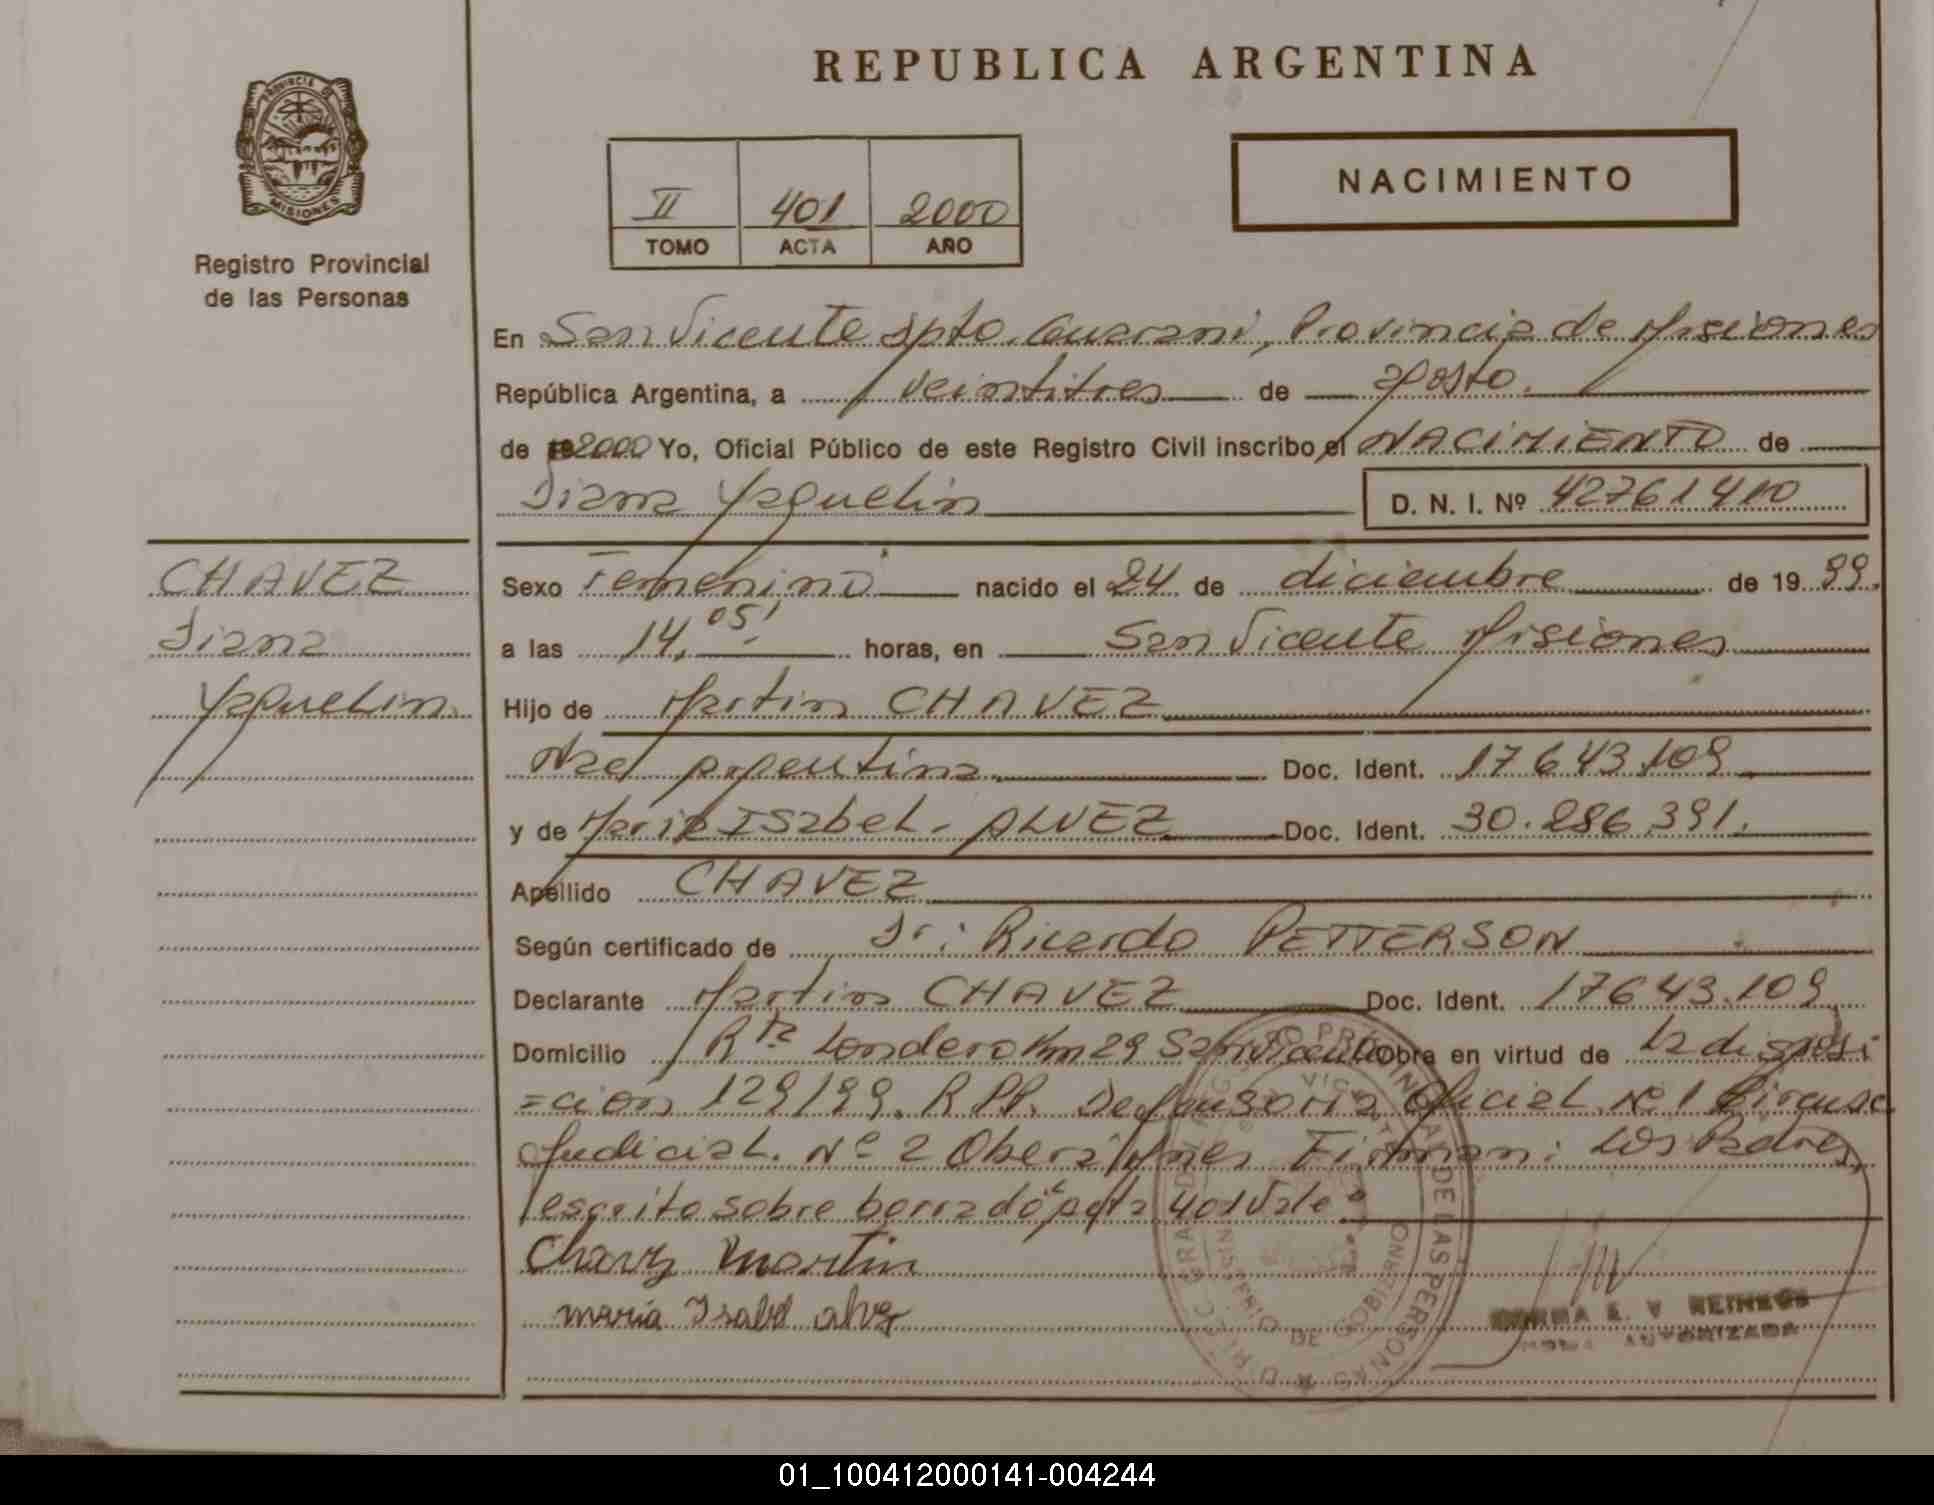 REPUBLICA ARGENTINA
PROVINCIA DE MISIONES
Registro Provincial
de las Personas
II 401 2000
TOMO ACTA AÑO
NACIMIENTO
En San Vicente Dpto. Guarani, Provincia de Misiones
República Argentina, a veintitres de agosto.
de 19 2000 Yo, Oficial Público de este Registro Civil inscribo el NACIMIENTO de
Diana Yaquelin D. N. I. Nº 42761400
CHAVEZ
Diana
Yaquelin.
Sexo Femenino nacido el 24 de diciembre de 19 99.
a las 14,05' horas, en San Vicente Misiones
Hijo de Martin CHAVEZ
Nac argentina Doc. Ident. 17643.109
y de Maria ISabeL. ALVEZ Doc. Ident. 30.286.391.
Apellido CHAVEZ
Según certificado de Dr: Ricardo PETTERSON
Declarante Martin CHAVEZ Doc. Ident. 17643.109
Domicilio Rta Londero Km 29 San Vicente Obra en virtud de la disposi
=cion 129/99. R.PP. Defensoria Oficial Nº 1 Circunsc
Judicial. Nº 2 Obera Mnes Firman: Los Padres,
escrito sobre borrado "acta 401 Vale
Chavez Martin
maria Isabel alvez
NORMA E. V REINEGS
AUTORIZADA
DIREC. GRAL DEL REGISTRO PROVINCIAL DE LAS PERSONAS
MINISTERIO DE GOBIERNO
01_100412000141-004244